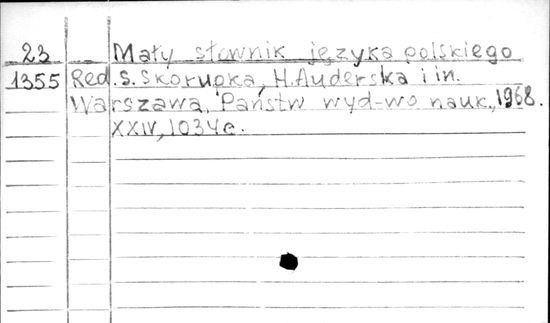 23 Mały słownik języka polskiego
1355 Red. S. Skorupka, H. Auderska i in.
Warszawa, Państw wyd-wo nauk., 1968.
XXIV, 1034 c.